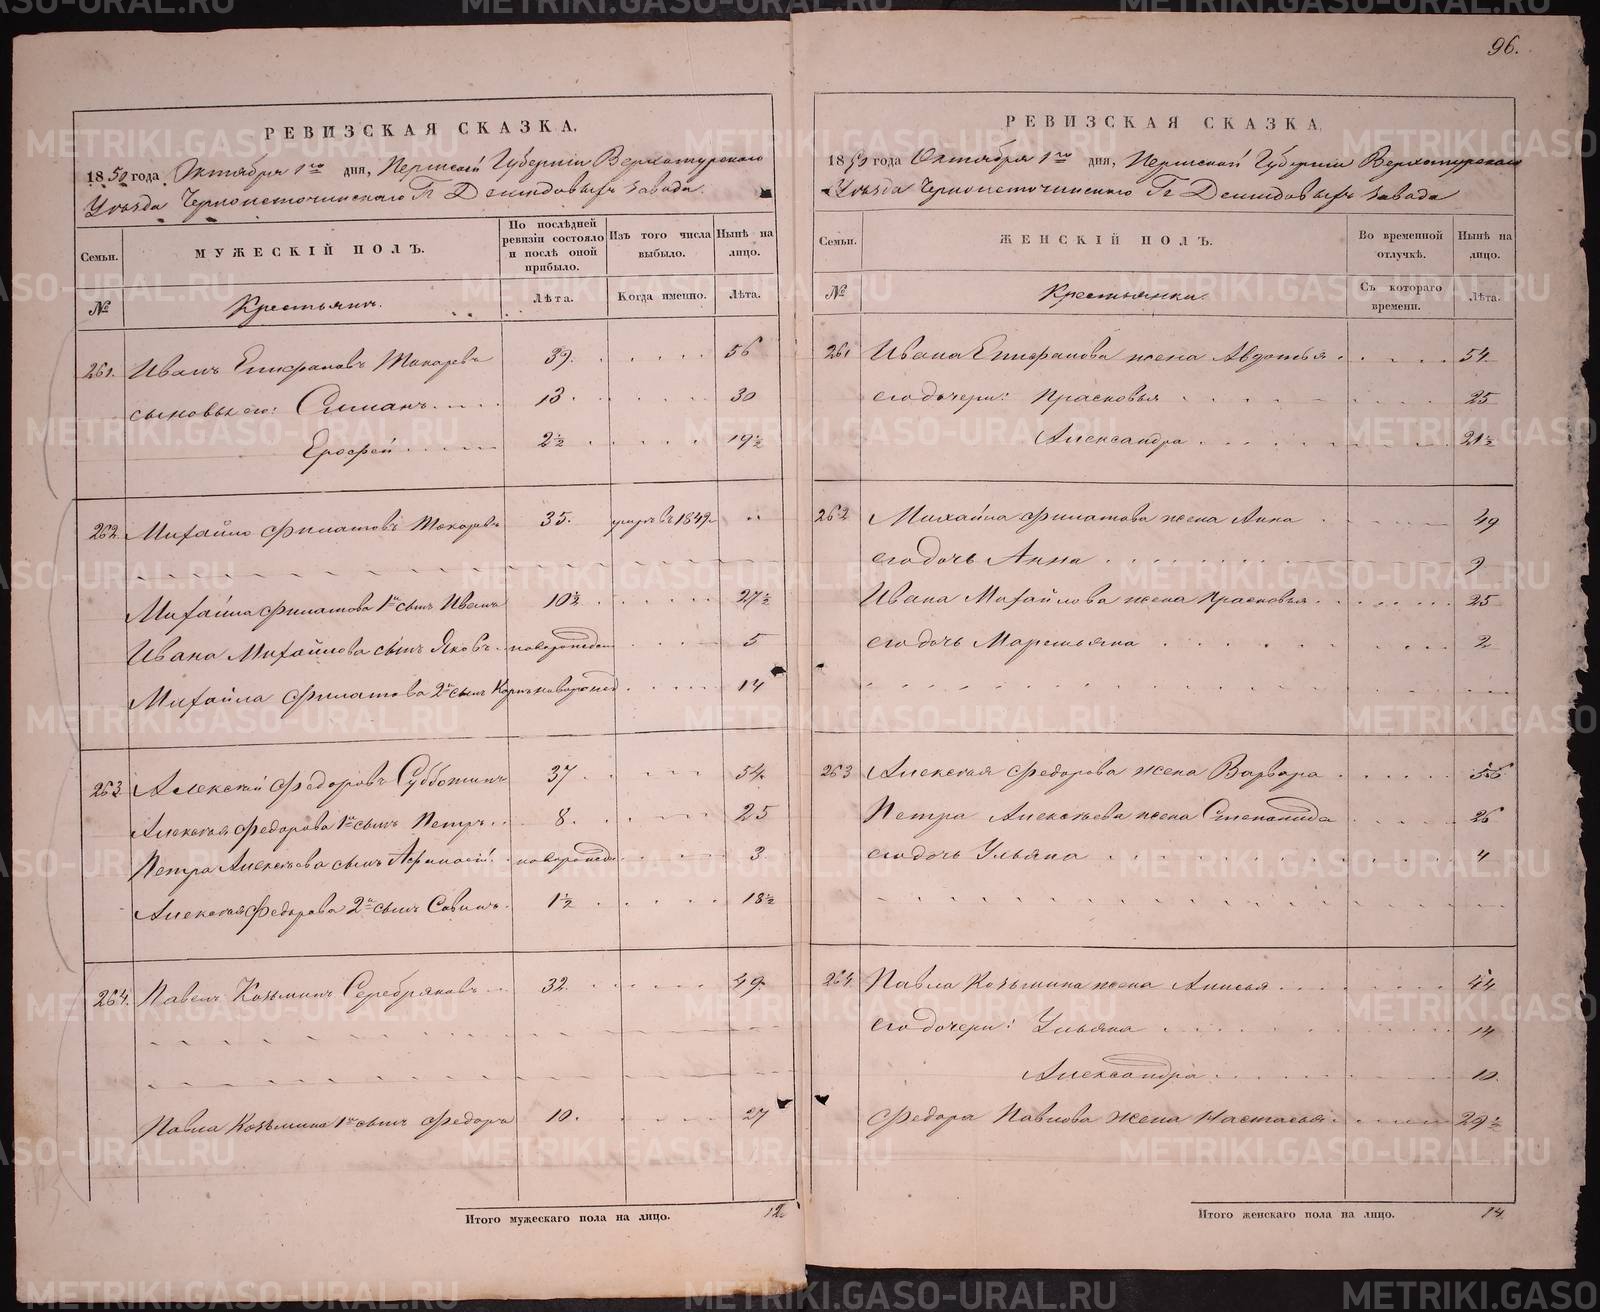 РЕВИЗСКАЯ СКАЗКА.
1850 года Октября 1го дня, Пермской Губернiи Верхотурскаго
Уѣзда Черноисточинскаго Гг Демидовыхъ завода.
Семьи.
МУЖЕСКIЙ ПОЛЪ.
По послѣдней ревизiи состояло и послѣ оной прибыло.
Изъ того числа выбыло.
Нынѣ на лицо.
№
Крестьяне.
Лѣта.
Когда именно.
Лѣта.
261. Иванъ Епифановъ Токаревъ 39. 56
сыновья его: Симанъ 13. 30
Ерофей 2½ 19½
262. Михайло Филатовъ Токаревъ 35. умеръ въ 1849г
Михайла Филатова 1й сынъ Иванъ 10½ 27½
Ивана Михайлова сынъ Яковъ новорожден 5
Михайла Филатова 2й сынъ Карпъ новорожд 14
263. Алексѣй Федоровъ Субботинъ 37 54.
Алексѣя Федорова 1й сынъ Петръ 8. 25
Петра Алексѣева сынъ Афанасiй новорожд 3.
Алексѣя Федорова 2й сынъ Савинъ 1½ 18½
264. Павелъ Козьминъ Серебряковъ 32. 49.
Павла Козьмина 1й сынъ Федоръ 10. 27
Итого мужескаго пола на лицо. 12.
96.
РЕВИЗСКАЯ СКАЗКА.
1850 года Октября 1го дня, Пермской Губернiи Верхотурскаго
Уѣзда Черноисточинскаго Гг Демидовыхъ завода
Семьи.
ЖЕНСКIЙ ПОЛЪ.
Во временной отлучкѣ.
Нынѣ на лицо.
№
Крестьянки.
Съ котораго времени.
Лѣта.
261 Ивана Епифанова жена Авдотья 54.
его дочери: Прасковья 25
Александра 21½
262 Михайла Филатова жена Анна 49
его дочь Анна 9
Ивана Михайлова жена Прасковья 25
его дочь Маремьяна 2
263 Алексѣя Федорова жена Варвара 56
Петра Алексѣева жена Степанида 26
его дочь Ульяна 4
264. Павла Козьмина жена Анисья 44
его дочери: Ульяна 14
Александра 10
Федора Павлова жена Настасья 29½
Итого женскаго пола на лицо. 14.
METRIKI.GASO-URAL.RU